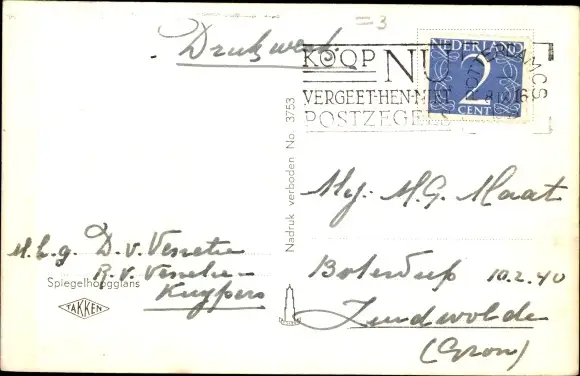 =3
Drukwerk
KOOP NU
VERGEET-HEN-NIET
POSTZEGELS
NEDERLAND
2
CENT
Nadruk verboden No. 3753
Mej. M.G. Maat
m.h.g. D.v. Venetie
R.v. Venetie-
Kuypers
Spiegelhoogglans
TAKKEN
Boterdiep 10.2.40
Zuidwolde
(Gron)